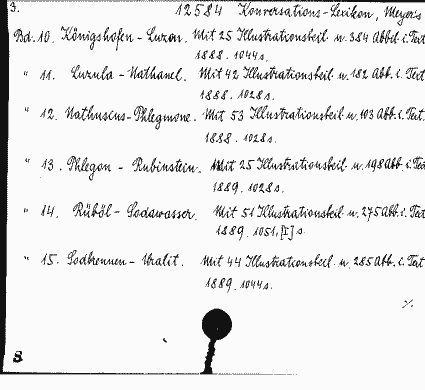 3.
12584 Konversations-Lexikon, Meyer's
Bd. 10. Königshofen - Luzon. Mit 25 Illustrationsbeil. u. 384 Abbd. i. Text
1888. 1044 s.
" 11. Luzula - Nathanael. Mit 42 Illustrationsbeil. u. 182 Abb. i. Text
1888. 1028 s.
" 12. Nathusius - Phlegmone. Mit 53 Illustrationsbeil. u. 103 Abb. i. Text.
1888. 1028 s.
" 13. Phlegon - Rubinstein. Mit 25 Illustrationsbeil. u. 198 Abb. i. Text
1889. 1028 s.
" 14. Rüböl - Sodawasser. Mit 51 Illustrationsbeil. u. 275 Abb. i. Text
1889. 1051, [1] s.
" 15. Sodbrennen - Uralit. Mit 44 Illustrationsbeil. u. 285 Abb. i. Text
1889. 1044 s.
%.
8